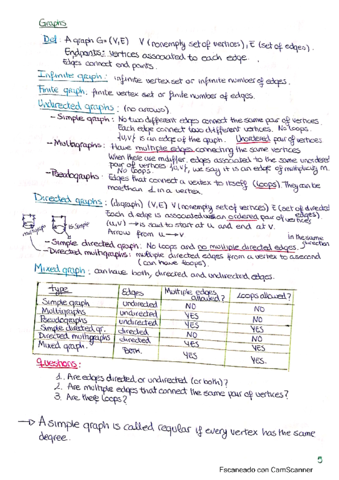 Graphs
Def: A graph G=(V,E) V (nonempty set of vertices), E (set of edges).
Endpoints: vertices associated to each edge.
Edges connect end points.
Infinite graph: infinite vertex set or infinite number of edges.
Finite graph: finite vertex set or finite number of edges.
Undirected graphs: (no arrows)
- Simple graph: No two different edges connect the same pair of vertices
Each edge connect two different vertices. No loops
{u,v} is an edge of the graph. Unordered pair of vertices
- Multigraphs: Have multiple edges connecting the same vertices
When there are m differ. edges associated to the same unordered
pair of vertices {u,v}, we say it is an edge of multiplicity m.
No loops.
- Pseudographs: Edges that connect a vertex to itself (loops). They can be
more than 1 in a vertex.
Directed graphs: (digraph) (V,E) V (nonempty set of vertices) E (set of directed edges)
Each d. edge is associated with an ordered pair of vertices
(u,v) → is said to start at u and end at v.
Arrow from u → v
- Simple directed graph: No loops and no multiple directed edges. in the same direction
- Directed multigraphs: multiple directed edges from a vertex to a second
(can have loops)
Mixed graph: can have both, directed and undirected edges.
Type Edges Multiple edges allowed? Loops allowed?
Simple graph undirected NO NO
Multigraphs undirected YES NO
Pseudographs undirected YES YES
Simple directed gr. directed NO NO
Directed multigraphs directed YES YES
Mixed graph. Both. YES YES
Questions:
1. Are edges directed or undirected (or both)?
2. Are multiple edges that connect the same pair of vertices?
3. Are there loops?
→ A simple graph is called regular if every vertex has the same
degree.
Escaneado con CamScanner